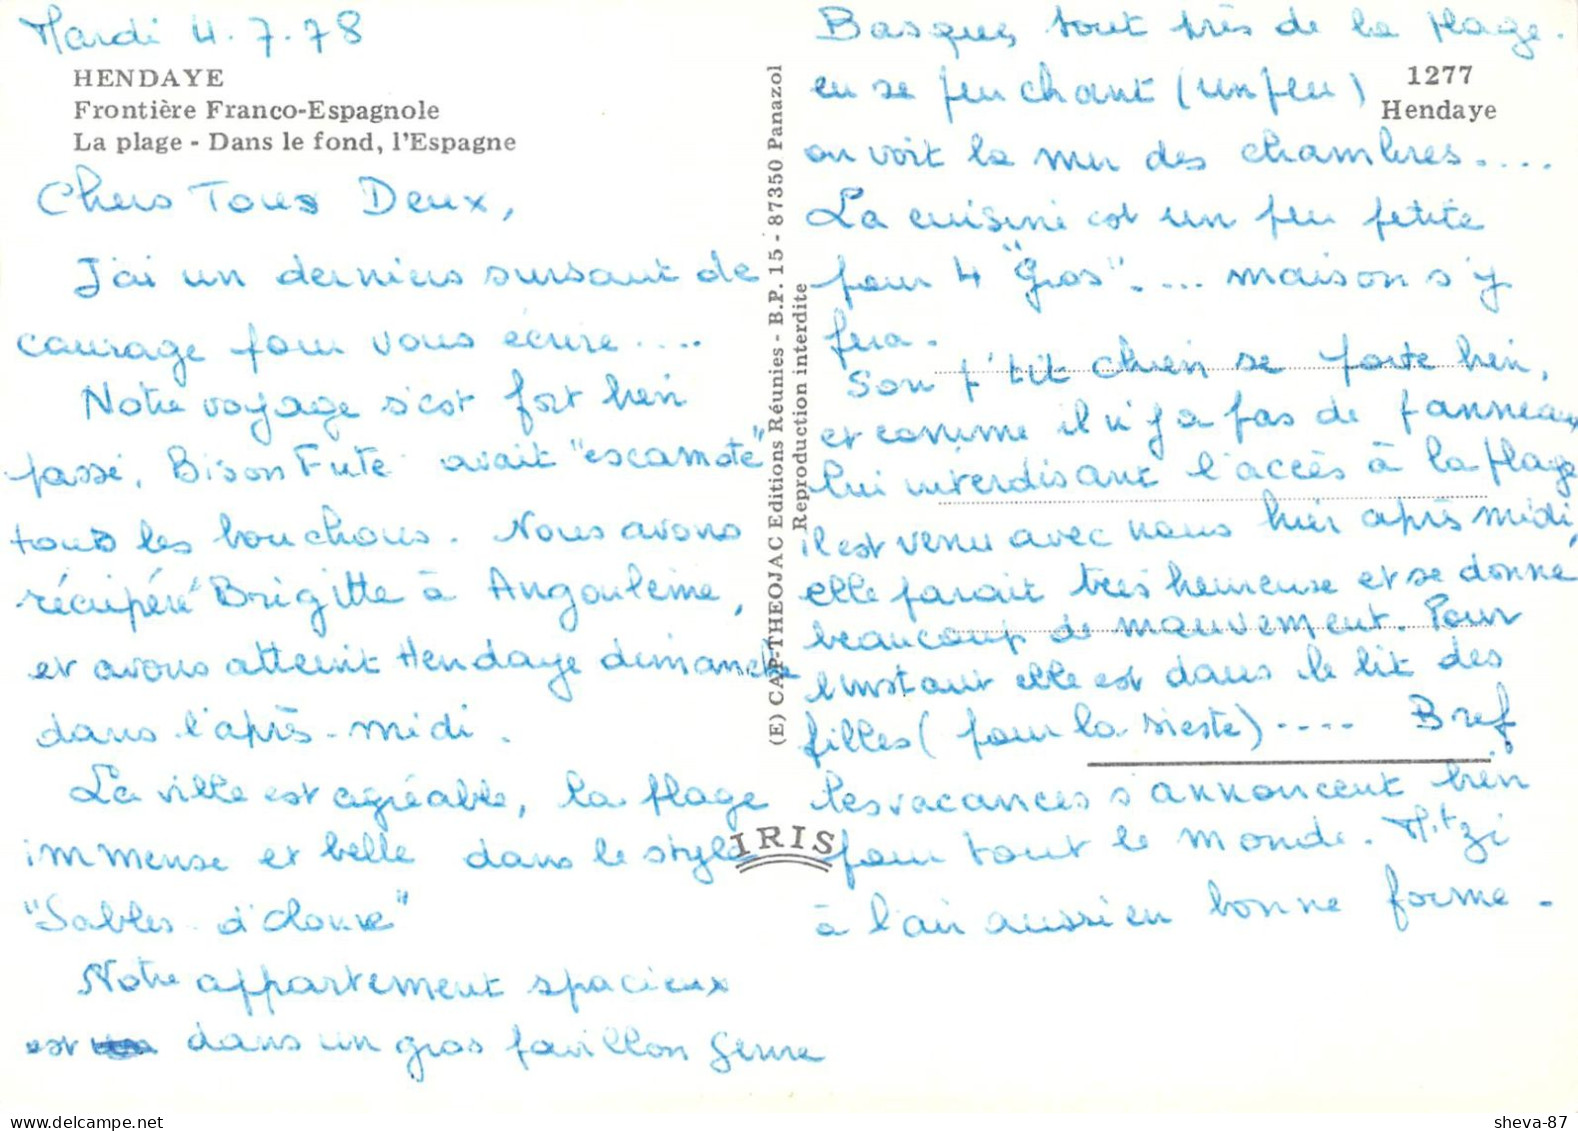 Mardi 4.7.78
HENDAYE
Frontière Franco-Espagnole
La plage - Dans le fond, l'Espagne
Chers Tous Deux,
J'ai un derniers sursaut de
courage pour vous écrire....
Notre voyage s'est fort bien
passé, Bison Futé avait "escamoté"
tous les bouchons. Nous avons
récupéré Brigitte à Angoulême,
et avons atteint Hendaye dimanche
dans l'après-midi.
La ville est agréable, la plage
immense et belle dans le style
"Sables d'olonne"
Notre appartement spacieux
est dans un gros pavillon genre
(E) CAP-THEOJAC Editions Réunies - B.P. 15 - 87350 Panazol
Reproduction interdite
IRIS
1277
Hendaye
Basque, tout près de la plage.
en se penchant (un peu)
on voit la mer des chambres....
La cuisine est un peu petite
pour 4 "Gros".... maison s'y
fera.
Son p'tit chien se porte bien,
et comme il n'y a pas de panneau
lui interdisant l'accès à la plage
il est venu avec nous hier après midi,
elle parait très heureuse et se donne
beaucoup de mouvement. Pour
l'instant elle est dans le lit des
filles (pour la sieste).... Bref
les vacances s'annoncent bien
pour tout le monde. Mitzi
à l'air aussi en bonne forme.
sheva-87